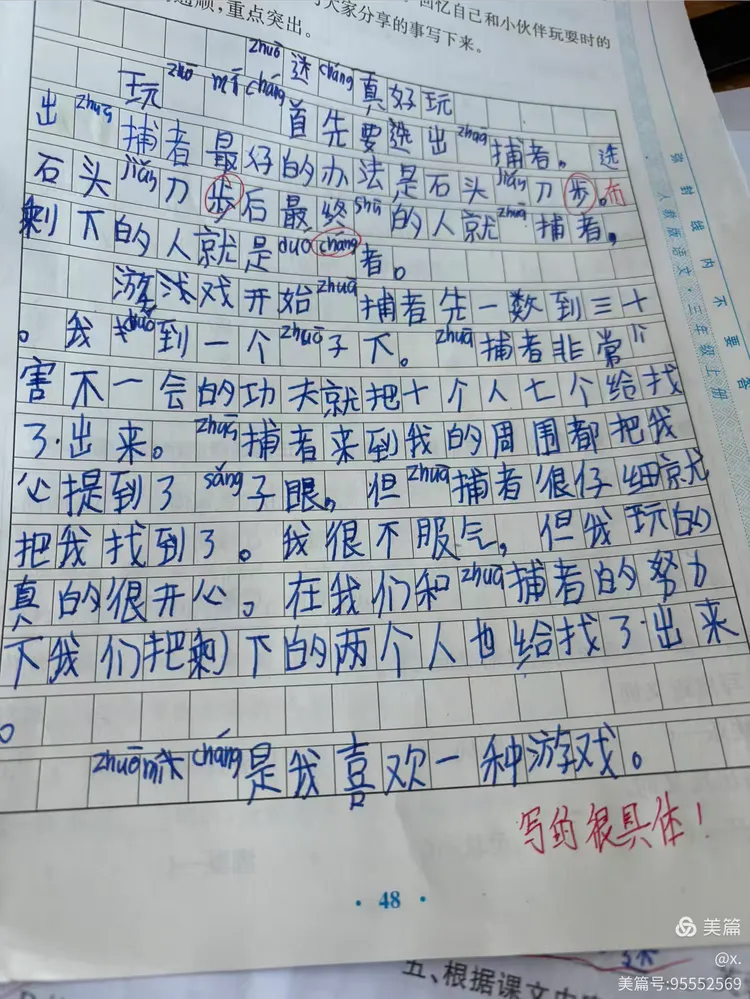 通顺，重点突出。
大家分享的事写下来。
回忆自己和小伙伴玩耍时的
zhuō迷cáng真好玩
玩zhuō mí cáng首先要选出zhuō捕者。选
出zhuō捕者最好的办法是石头jiǎn刀步。布
石头jiǎn刀步后最终shū的人就zhuō捕者，
剩下的人就是duo cháng者。
游戏开始zhuō捕者先一数到三十
。我duǒ到一个zhuō子下。zhuō捕者非常
害不一会的功夫就把十个人七个给找
了出来。zhuō捕者来到我的周围都把我
心提到了sǎng子眼，但zhuō捕者很仔细就
把我找到了。我很不服气，但我玩的
真的很开心。在我们和zhuō捕者的努力
下我们把剩下的两个人也给找了出来
。
zhuō迷cháng是我喜欢一种游戏。
写的很具体！
·48·
密封线内不要答
人教版语文·三年级上册
五、根据课文内
美篇
@x.
美篇号:95552569